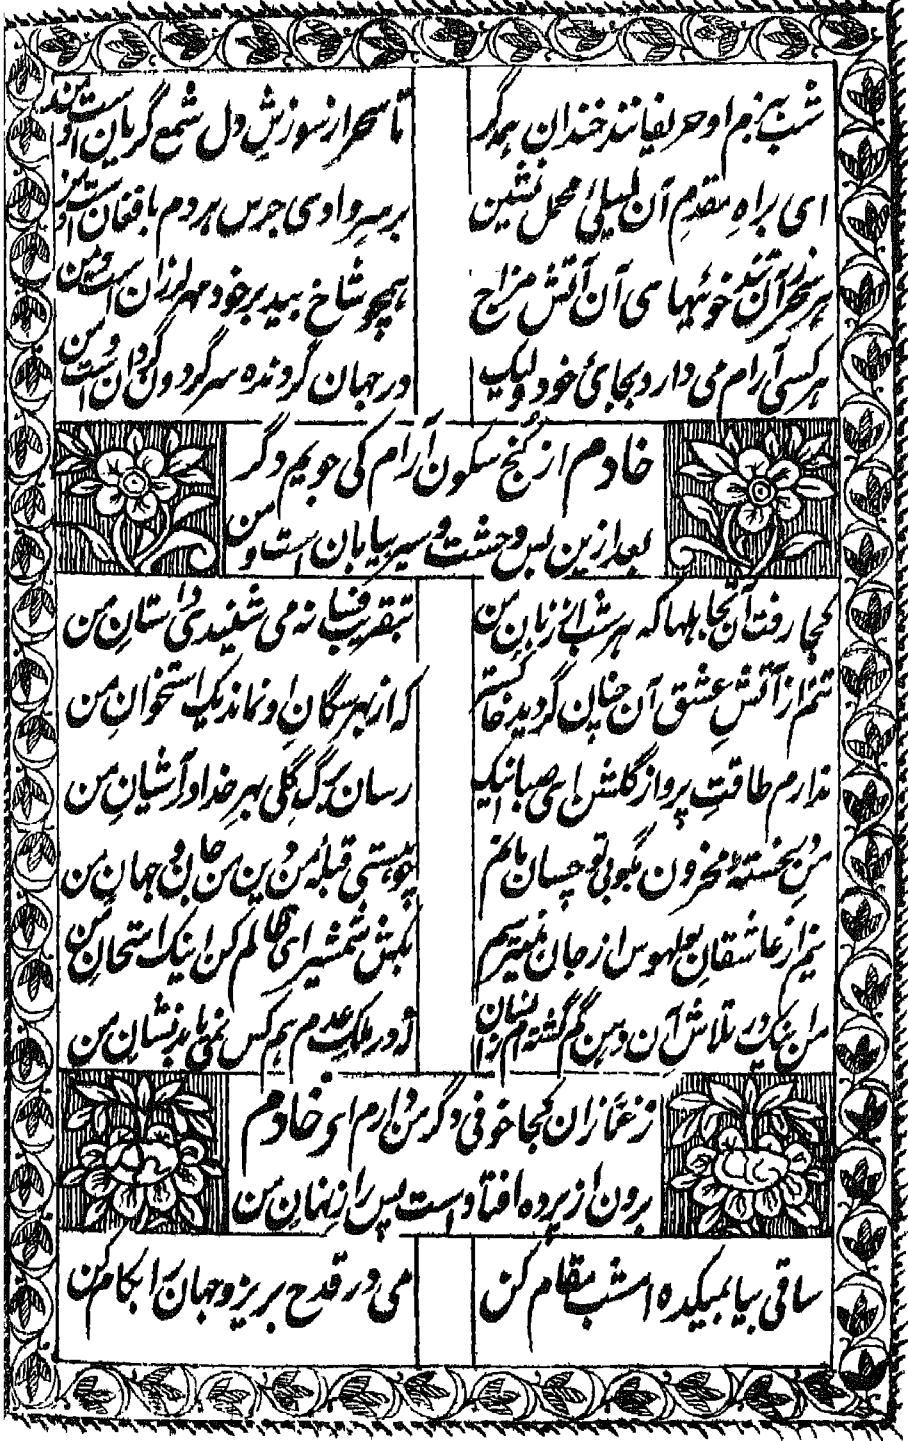 شب ببزم او حریفانند خندان همدگر
تا سحر از سوزش دل شمع گریان است و من
ای براهِ مقدمِ آن لیلیٔ محمل نشین
بر سرِ وادی جرس هر دم بافغان است و من
هر سحر از تند خوئیهای آن آتش مزاج
همچو شاخ بید بر خود مهر لرزان است و من
هر کسی آرام می دارد بجایٔ خود و لیک
در جهان گردنده سر گردون گردان است و من
خادم از کُنج سکون آرام کی جویم دگر
بعد ازین بس وحشت و سیر بیابان است و من
کجا رفت آنجا بلها که هر شب از زبانِ من
بتقریب فسانه می شنیدی داستانِ من
تنم از آتشِ عشق آن چنان گردید خاکستر
که از بهر سگانِ او نماند یک استخوانِ من
ندارم طاقتِ پرواز گلشن ای صبا اینک
رسان برگ گلی بهرِ خدا در آشیانِ من
منِ دلخستهٔ محزون بگو بی تو چسان مانم
چو هستی قبلهٔ من دین من جان و جهانِ من
نیم از عاشقانِ بوالهوس از جان نمیترسم
بکش شمشیر ای ظالم کن اینک امتحانِ من
من اینک در تلاش آن دهن گم گشته ام زانسان
که در ملکِ عدم هم کس نمی یابد نشانِ من
ز غمّازان کجا خوفی دگر من دارم ای خادم
برون از پرده افتاد است پس رازِ نهانِ من
ساقی بیا بمیکده امشب مقام کن
می در قدح بریز و جهان را بکام کن